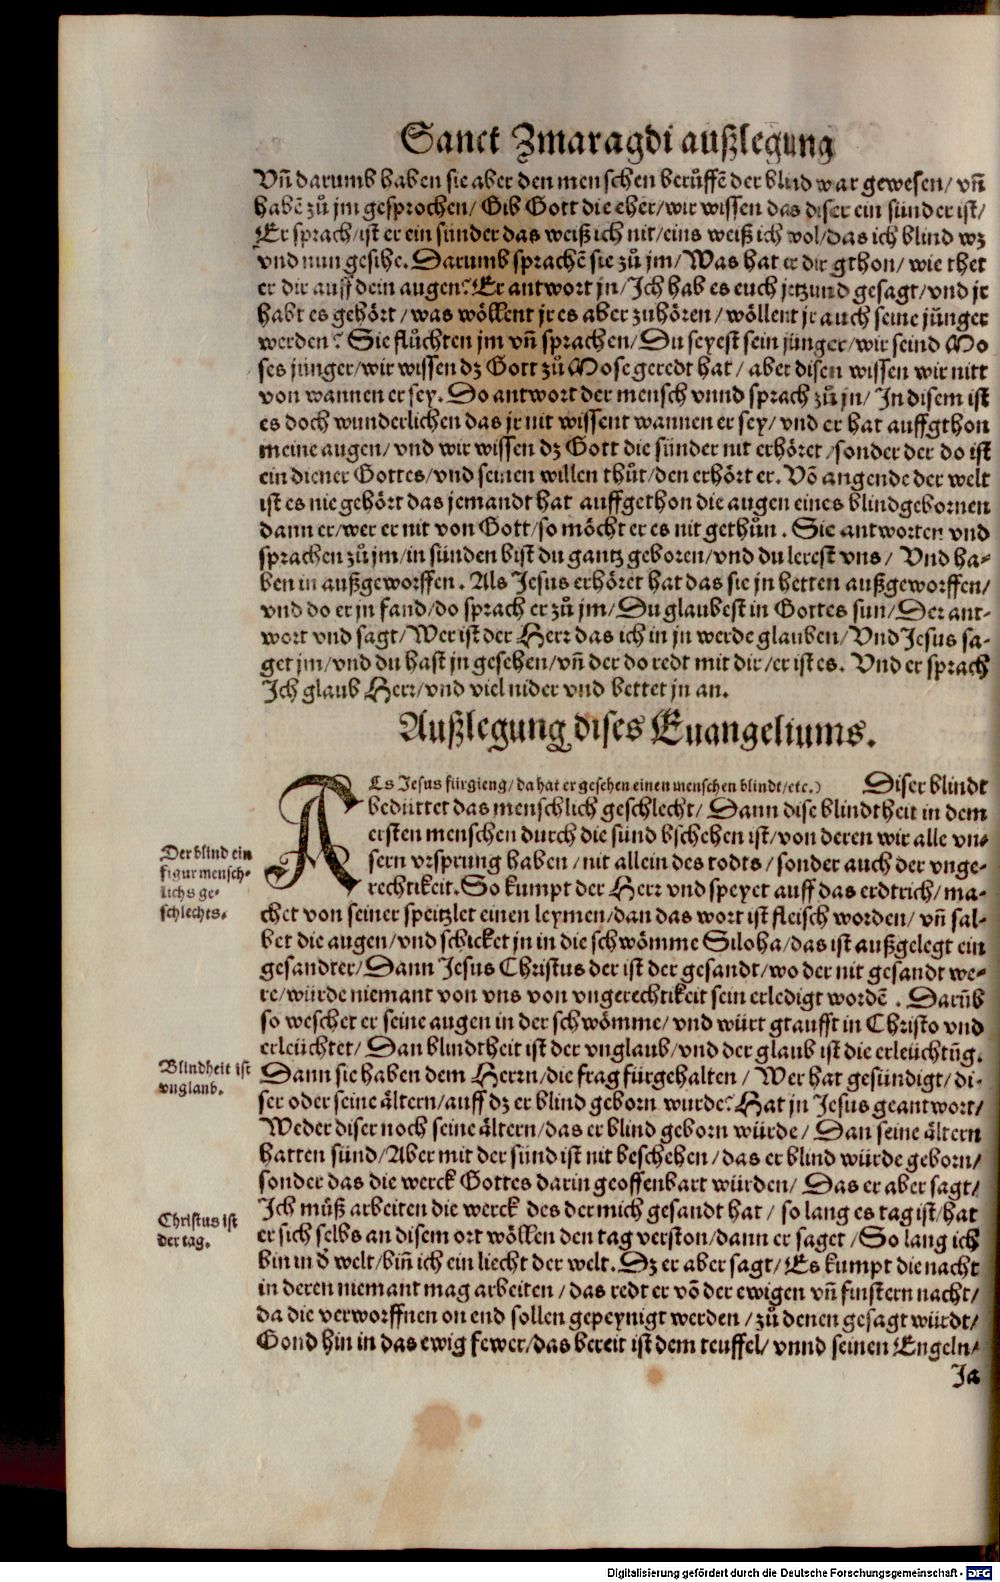 Sanct Zmaragdi außlegung
Vñ darumb haben sie aber den menschen berůffē der blind war gewesen/ vñ
habē zů jm gesprochen/ Gib Gott die eher/ wir wissen das diser ein sünder ist/
Er sprach/ ist er ein sünder das weiß ich nit/ eins weiß ich wol/ das ich blind wz
vnd nun gesihe. Darumb sprachē sie zů jm/ Was hat er dir gthon/ wie thet
er dir auff dein augen? Er antwort jn/ Ich hab es euch jetzund gesagt/ vnd jr
habt es gehört/ was wöllent jr es aber zuhören/ wöllent jr auch seine jünger
werden? Sie flůchten jm vñ sprachen/ Du seyest sein jünger/ wir seind Mo
ses jünger/ wir wissen dz Gott zů Mose geredt hat/ aber disen wissen wir nitt
von wannen er sey. Do antwort der mensch vnnd sprach zů jn/ In disem ist
es doch wunderlichen das jr nit wissent wannen er sey/ vnd er hat auffgthon
meine augen/ vnd wir wissen dz Gott die sünder nit erhöret/ sonder der do ist
ein diener Gottes/ vnd seinen willen thůt/ den erhört er. Vō angende der welt
ist es nie gehört das jemandt hat auffgethon die augen eines blindgebornen
dann er/ wer er nit von Gott/ so möcht er es nit gethůn. Sie antworten vnd
sprachen zů jm/ in sünden bist du gantz geboren/ vnd du lerest vns/ Vnd ha-
ben in außgeworffen. Als Jesus erhöret hat das sie jn hetten außgeworffen/
vnd do er jn fand/ do sprach er zů jm/ Du glaubest in Gottes sun/ Der ant-
wort vnd sagt/ Wer ist der Herr das ich in jn werde glauben/ Vnd Jesus sa-
get jm/ vnd du hast jn gesehen/ vñ der do redt mit dir/ er ist es. Vnd er sprach
Ich glaub Herr/ vnd viel nider vnd bettet jn an.
Außlegung dises Euangeliums.
ALs Jesus fürgieng/ da hat er gesehen einen menschen blindt/ etc.) Diser blindt
bedüttet das menschlich geschlecht/ Dann dise blindtheit in dem
ersten menschen durch die sünd bschehen ist/ von deren wir alle vn-
sern vrsprung haben/ nit allein des todts/ sonder auch der vnge-
rechtikeit. So kumpt der Herr vnd speyet auff das erdtrich/ ma-
chet von seiner speitzlet einen leymen/ dan das wort ist fleisch worden/ vñ sal-
bet die augen/ vnd schicket jn in die schwömme Siloha/ das ist außgelegt ein
gesandter/ Dann Jesus Christus der ist der gesandt/ wo der nit gesandt we-
re/ würde niemant von vns von vngerechtikeit sein erledigt wordē. Darūb
so weschet er seine augen in der schwömme/ vnd würt gtaufft in Christo vnd
erleüchtet/ Dan blindtheit ist der vnglaub/ vnd der glaub ist die erleüchtūg.
Dann sie haben dem Herrn/ die frag fürgehalten/ Wer hat gesündigt/ di-
ser oder seine ältern/ auff dz er blind geborn wurde? Hat jn Jesus geantwort/
Weder diser noch seine ältern/ das er blind geborn würde/ Dan seine ältern
hatten sünd/ Aber mit der sünd ist nit beschehen/ das er blind würde geborn/
sonder das die werck Gottes darin geoffenbart würden/ Das er aber sagt/
Ich můß arbeiten die werck des der mich gesandt hat/ so lang es tag ist/ hat
er sich selbs an disem ort wöllen den tag verston/ dann er saget/ So lang ich
bin in d̄ welt/ biñ ich ein liecht der welt. Dz er aber sagt/ Es kumpt die nacht
in deren niemant mag arbeiten/ das redt er vō der ewigen vñ finstern nacht/
da die verworffnen on end sollen gepeynigt werden/ zů denen gesagt würdt/
Gond hin in das ewig fewer/ das bereit ist dem teuffel/ vnnd seinen Engeln/
Ja
Der blind ein
figur mensch-
lichs ge-
schlechts.
Blindheit ist
vnglaub.
Christus ist
der tag.
Digitalisierung gefördert durch die Deutsche Forschungsgemeinschaft - DFG